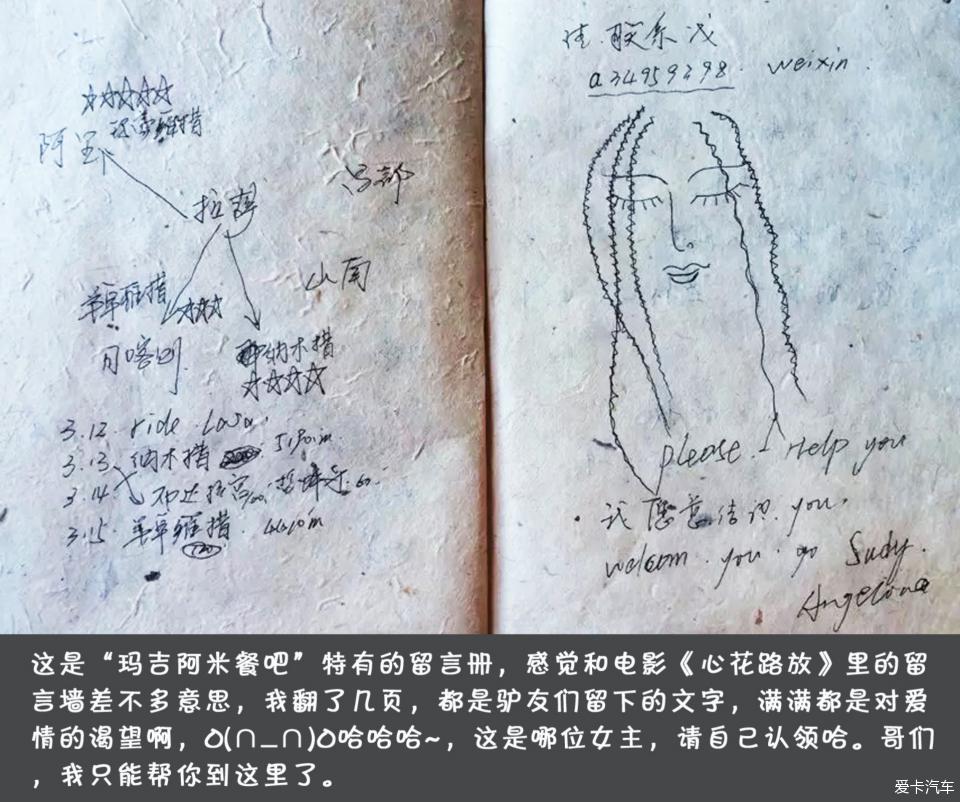 ☆☆☆☆☆
阿里
拉萨
昌部
山南
羊卓雍措
☆☆☆
日喀则
纳木措
☆☆☆☆
3.12. ride Lasa.
3.13 纳木措 5190m.
3.14 布达拉宫
3.15. 羊卓雍措. 4410m
联系我
a34959298. weixin.
please I Help you
我愿意结识 you.
welcom you go Sudy.
Angelina
这是“玛吉阿米餐吧”特有的留言册，感觉和电影《心花路放》里的留
言墙差不多意思，我翻了几页，都是驴友们留下的文字，满满都是对爱
情的渴望啊，O(∩_∩)O哈哈哈~，这是哪位女主，请自己认领哈。哥们
，我只能帮你到这里了。
爱卡汽车